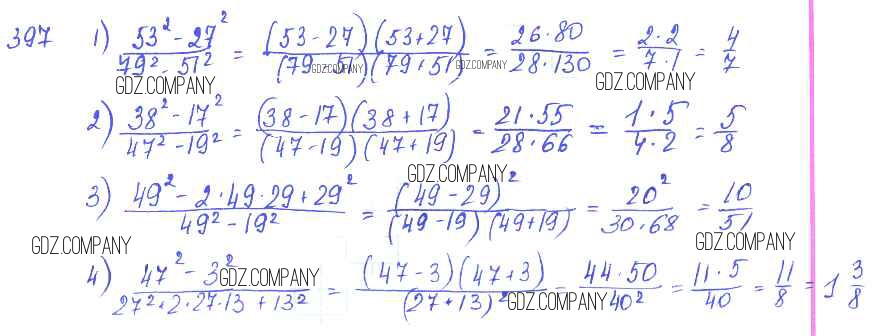 397 1) (53² - 27²)/(79² - 51²) = ((53 - 27)(53 + 27))/((79 - 51)(79 + 51)) = (26 · 80)/(28 · 130) = (2 · 2)/(7 · 1) = 4/7
GDZ.COMPANY GDZ.COMPANY GDZ.COMPANY GDZ.COMPANY
2) (38² - 17²)/(47² - 19²) = ((38 - 17)(38 + 17))/((47 - 19)(47 + 19)) = (21 · 55)/(28 · 66) = (1 · 5)/(4 · 2) = 5/8
GDZ.COMPANY
3) (49² - 2 · 49 · 29 + 29²)/(49² - 19²) = (49 - 29)²/((49 - 19)(49 + 19)) = 20²/(30 · 68) = 10/51
GDZ.COMPANY GDZ.COMPANY
4) (47² - 3²)/(27² + 2 · 27 · 13 + 13²) = ((47 - 3)(47 + 3))/(27 + 13)² = (44 · 50)/40² = (11 · 5)/40 = 11/8 = 1 3/8
GDZ.COMPANY GDZ.COMPANY